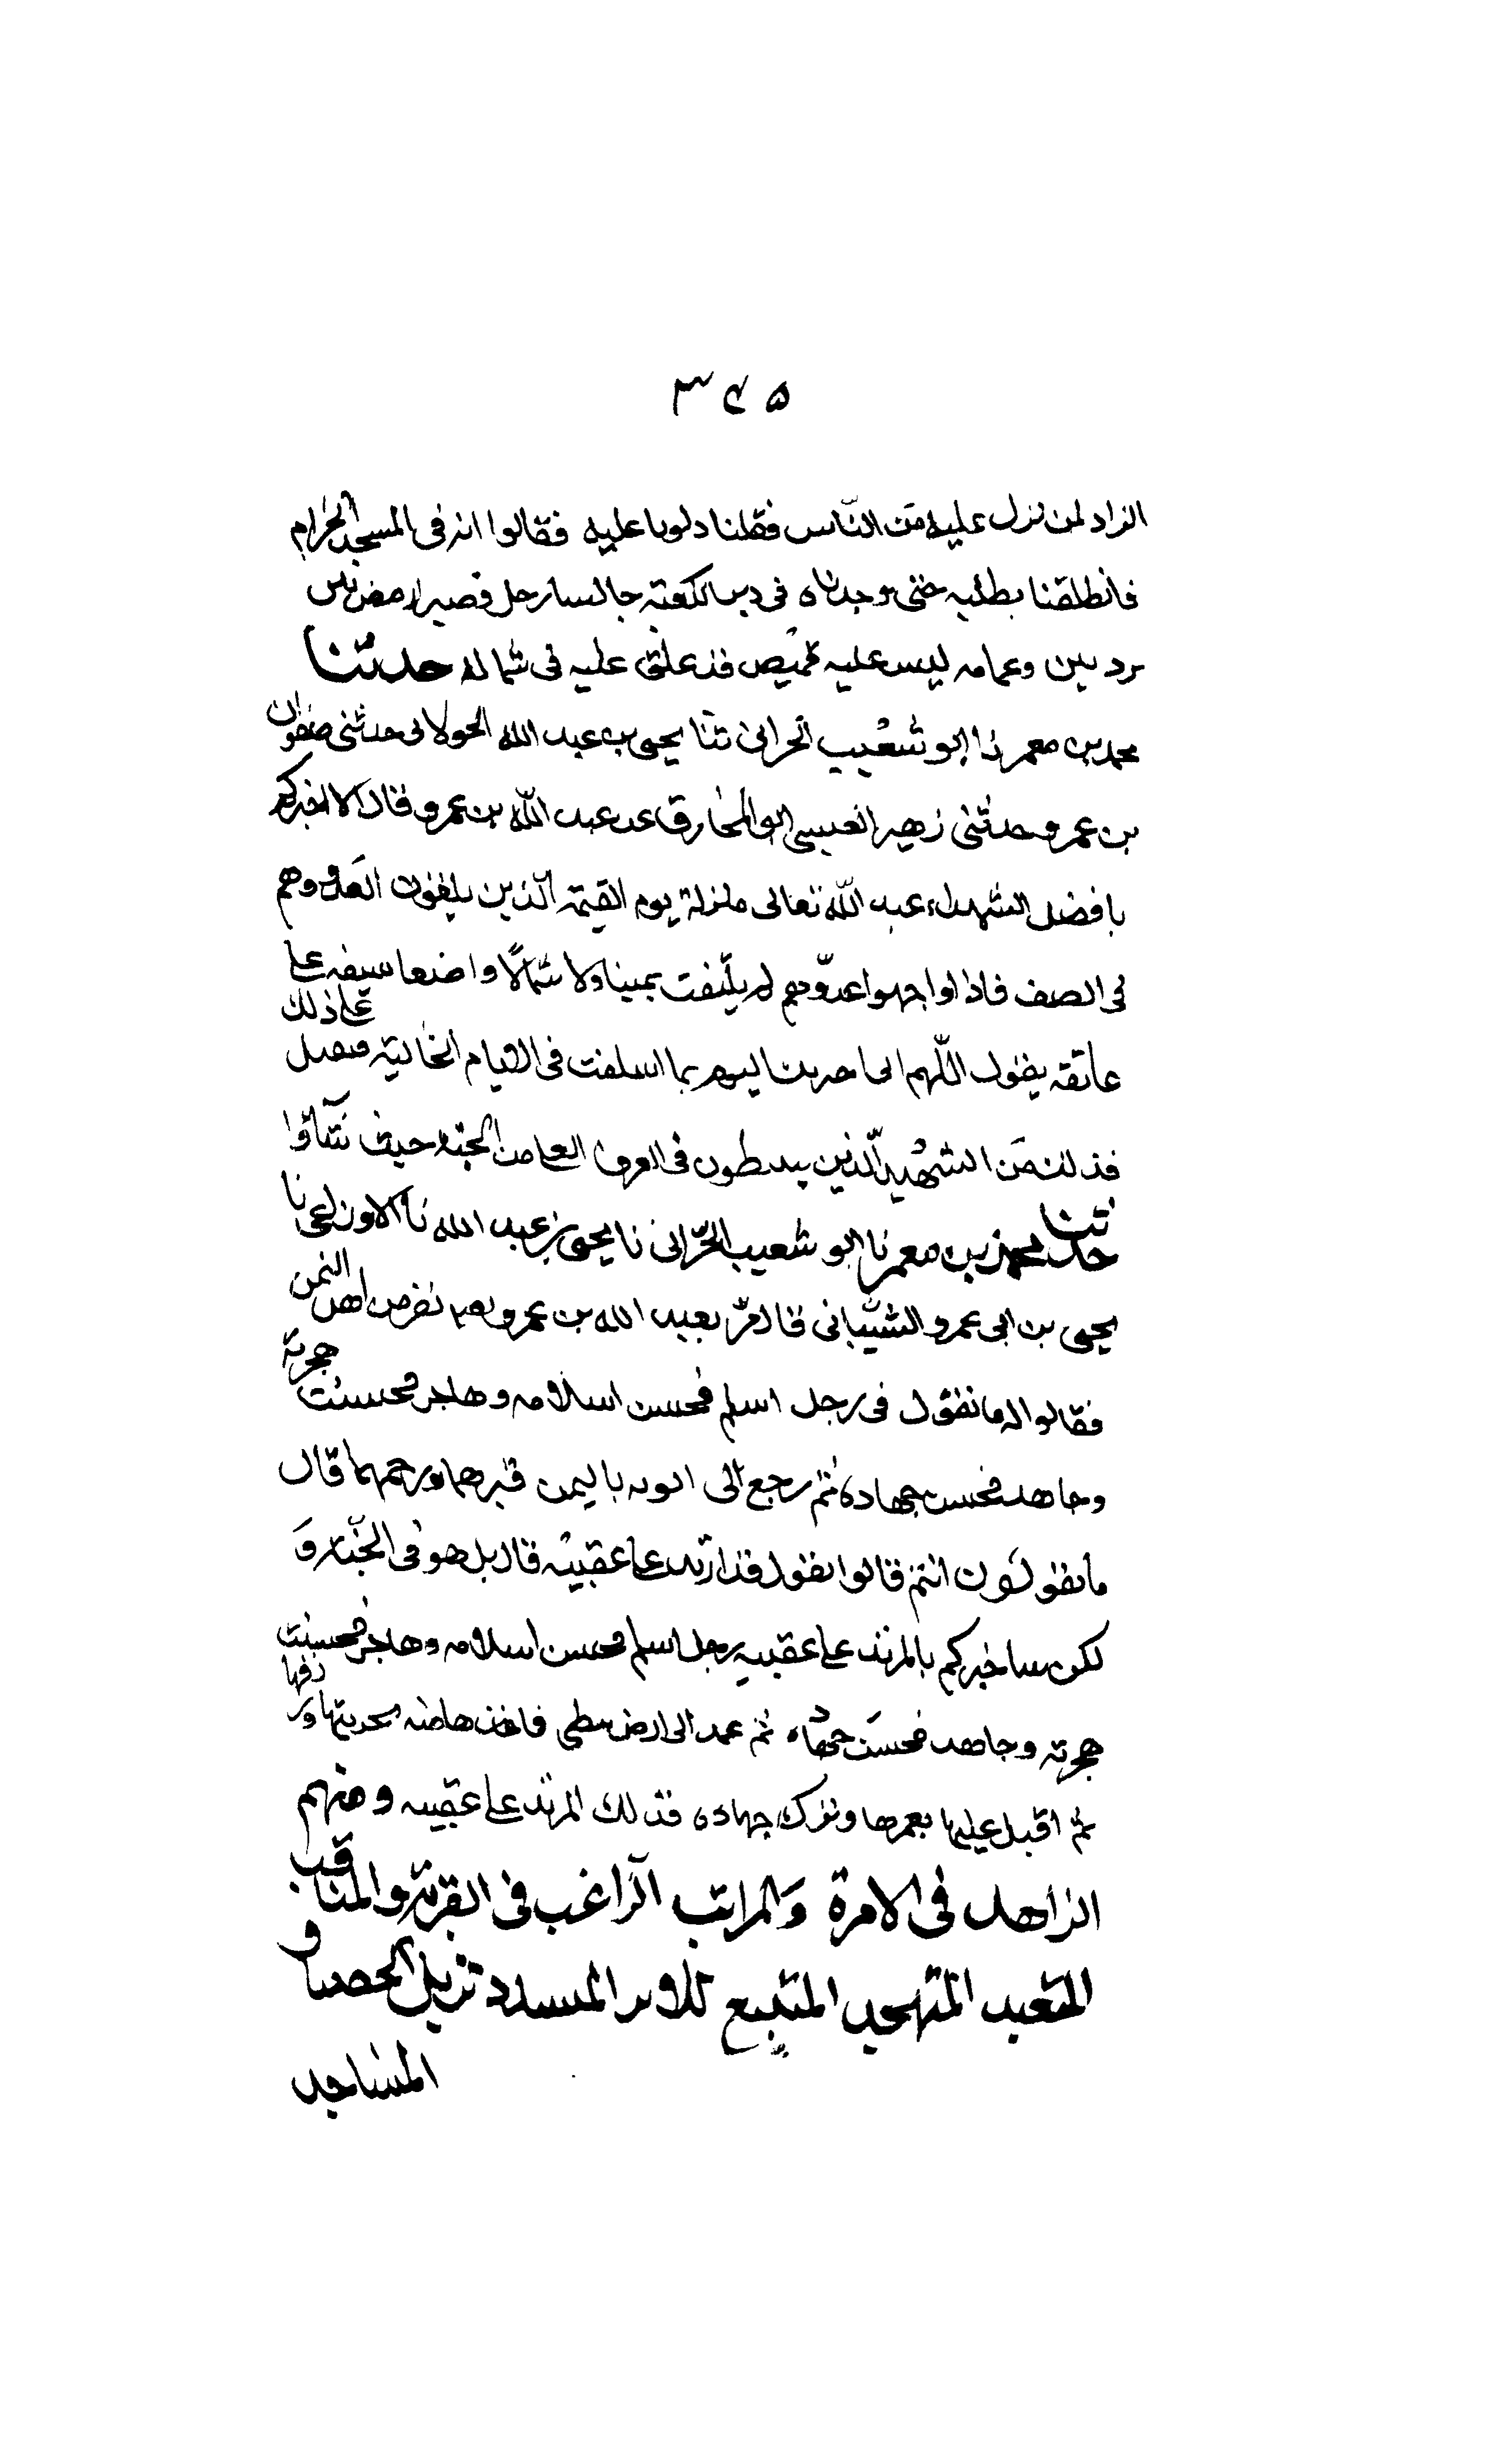 ٣٤٥
الزاد لمن نزل عليه من الناس فقلنا دلونا عليه فقالوا انه في المسجد الحرام
فانطلقنا نطلبه حتى وجدناه في دبر الكعبة جالسا رجل قصير ارمص بين
بردين وعمامه ليس عليه قميص قد علق عليه في شماله حدثنا
محمد بن معمر ثنا ابو شعيب الحراني ثنا يحيى بن عبد الله الحولانى حدثني صفوان
بن عمرو حدثني زهير العبسي ابو المخارق عن عبد الله بن عمرو قال الا اخبركم
بافضل الشهداء عبد الله تعالى منزلة يوم القيمة الذين يلقون العدو وهم
في الصف فاذا واجهوا عدوهم لم يلتفت يمينا ولا شمالا واضعا سيفه على
عاتقه يقول اللهم انى اليوم بما اسلفت في الايام الخالية فيقتل على ذلك
فذلك من الشهداء الذين يتلبطون في الغرف العلى من الجنة حيث شاؤا
حدثنا محمد بن معمر نا ابو شعيب الحراني نا يحيى بن عبد الله نا الاوزاعى نا
يحيى بن ابى عمرو الشيبانى قال مر بعبد الله بن عمرو نفر من اهل اليمن
فقالوا له ما تقول في رجل اسلم فحسن اسلامه وهاجر فحسنت هجرته
وجاهد فحسن جهاده ثم رجع الى ابويه باليمن فبرهما ورحمهما قال
ما تقولون انتم قالوا نقول قد ارتد على عقبيه قال بل هو في الجنة و
لكن ساخبركم بالمرتد على عقبيه رجل اسلم فحسن اسلامه وهاجر فحسنت
هجرته وجاهد فحسن جهاده ثم عمد الى ارض نبطي فاخذها منه بجزيتها ورزقها
ثم اقبل عليها يعمرها وترك جهاده فذلك المرتد على عقبيه ومنهم
الزاهد في الامرة والمراتب الراغب في القربة والمناقب
المتعبد المتهجد المتتبع للاثر المسدد نزيل الحصبا و
المساجد